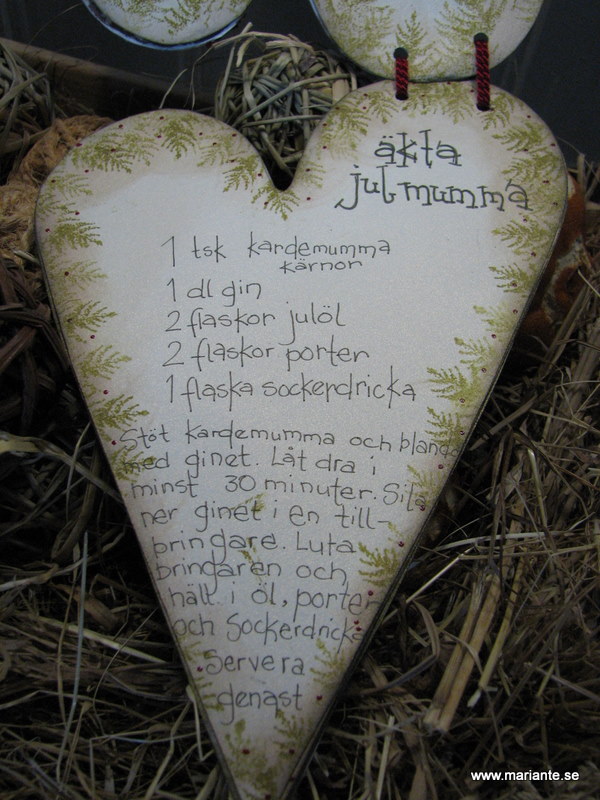 äkta
julmumma
1 tsk kardemumma
kärnor
1 dl gin
2 flaskor julöl
2 flaskor porter
1 flaska sockerdricka
Stöt kardemumma och blanda
med ginet. Låt dra i
minst 30 minuter. Sila
ner ginet i en till-
bringare. Luta
bringaren och
häll i öl, porter
och sockerdricka
Servera
genast
www.mariante.se